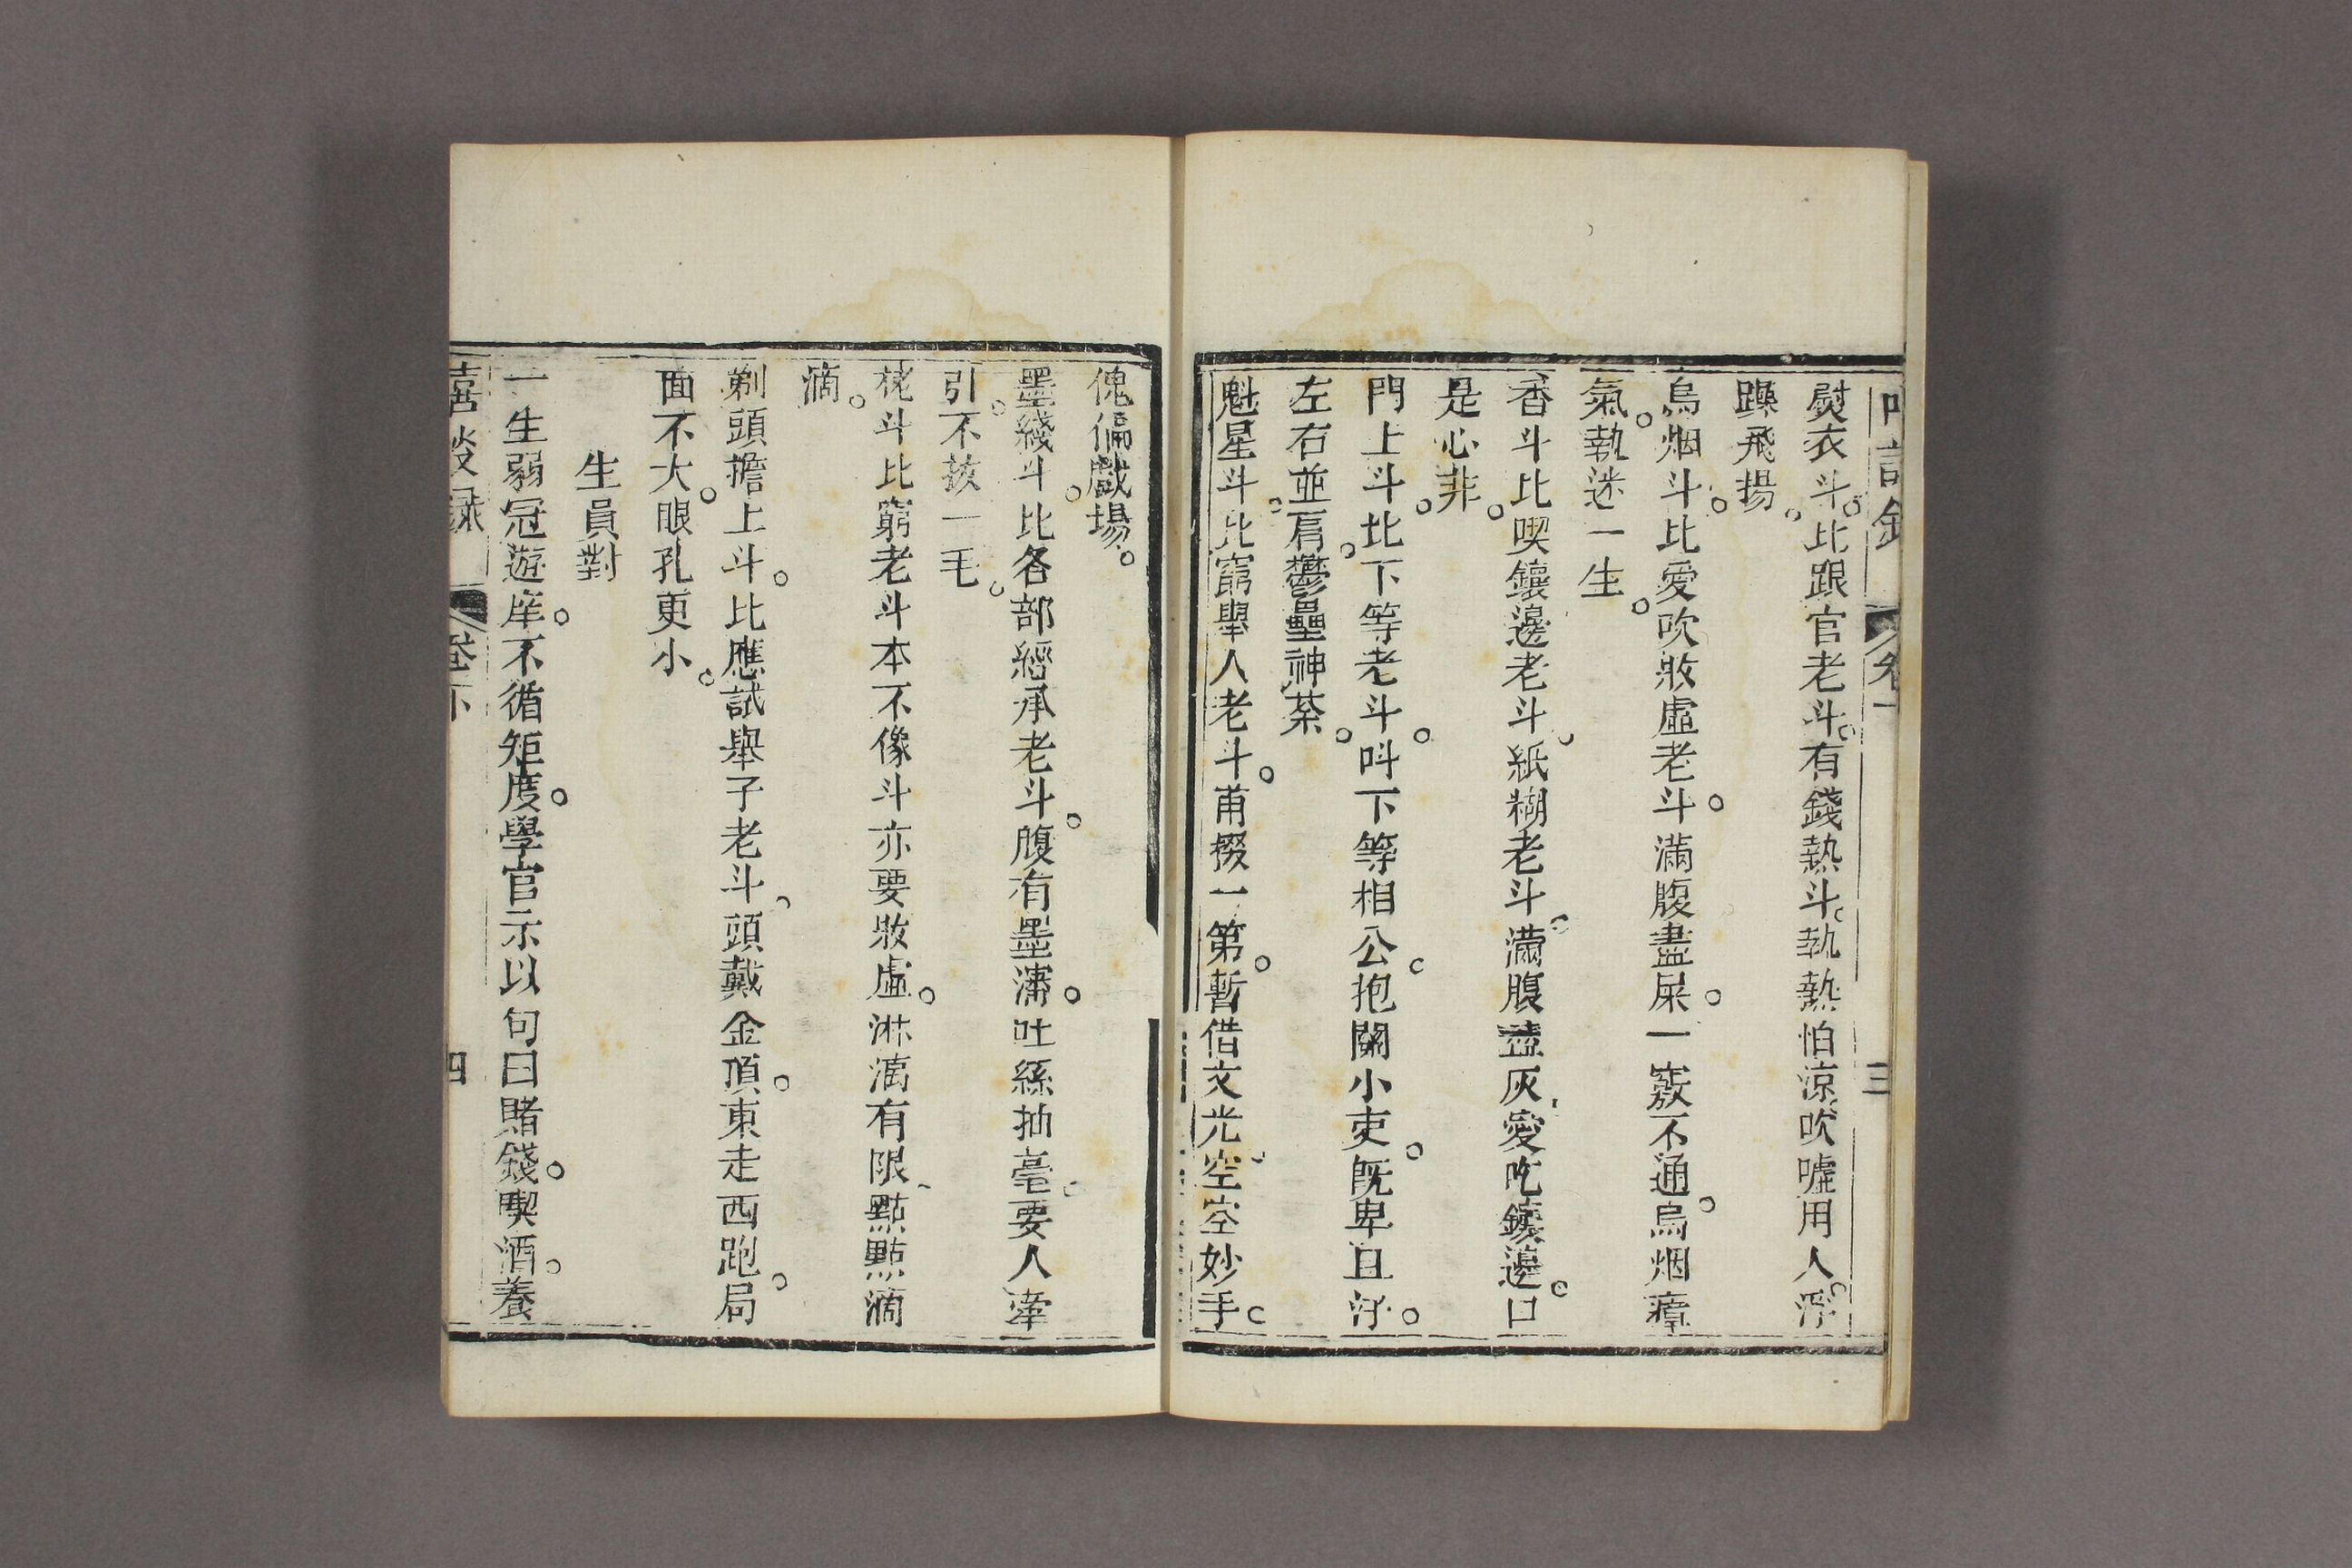 熨衣斗比跟官老斗。有錢熱斗。執熱怕涼吹噓用人。浮
躁飛揚。
烏烟斗。比愛吹牧虛老斗。滿腹盡屎。一竅不通。烏烟瘴
氣。執迷一生。
香斗比喫鑲邊老斗。紙糊老斗。滿腹盡灰愛吃鑲邊。口
是心非。
門上斗。比下等老斗。呌下等相公。抱關小吏。旣卑且汙。
左右並肩。鬱壘神荼。
魁星斗。比窮舉人老斗。甫掇一第。暫借文光。空空妙手。
傀儡戲場。
墨綫斗。比各部經承老斗。腹有墨瀋。吐絲抽毫。要人牽
引。不拔一毛。
梡斗比窮老斗本不像斗亦要牧虛。淋漓有限點點滴
滴。
剃頭擔上斗。比應試舉子老斗。頭戴金頂。東走西跑。局
面不大。眼孔更小。
生員對
一生弱冠遊庠。不循矩度。學官示以句曰賭錢。喫酒。養
嘻談錄 卷下 四
三